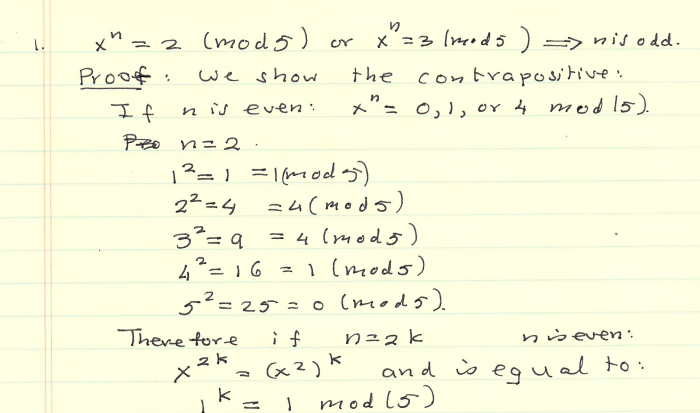 1. xⁿ = 2 (mod 5) or xⁿ = 3 (mod 5) ⟹ n is odd.
Proof : We show the contrapositive:
If n is even: xⁿ = 0, 1, or 4 mod (5).
n = 2.
1² = 1 = 1 (mod 5)
2² = 4 = 4 (mod 5)
3² = 9 = 4 (mod 5)
4² = 16 = 1 (mod 5)
5² = 25 = 0 (mod 5).
Therefore if n = 2k n is even:
x²ᵏ = (x²)ᵏ and is equal to:
1ᵏ = 1 mod (5)